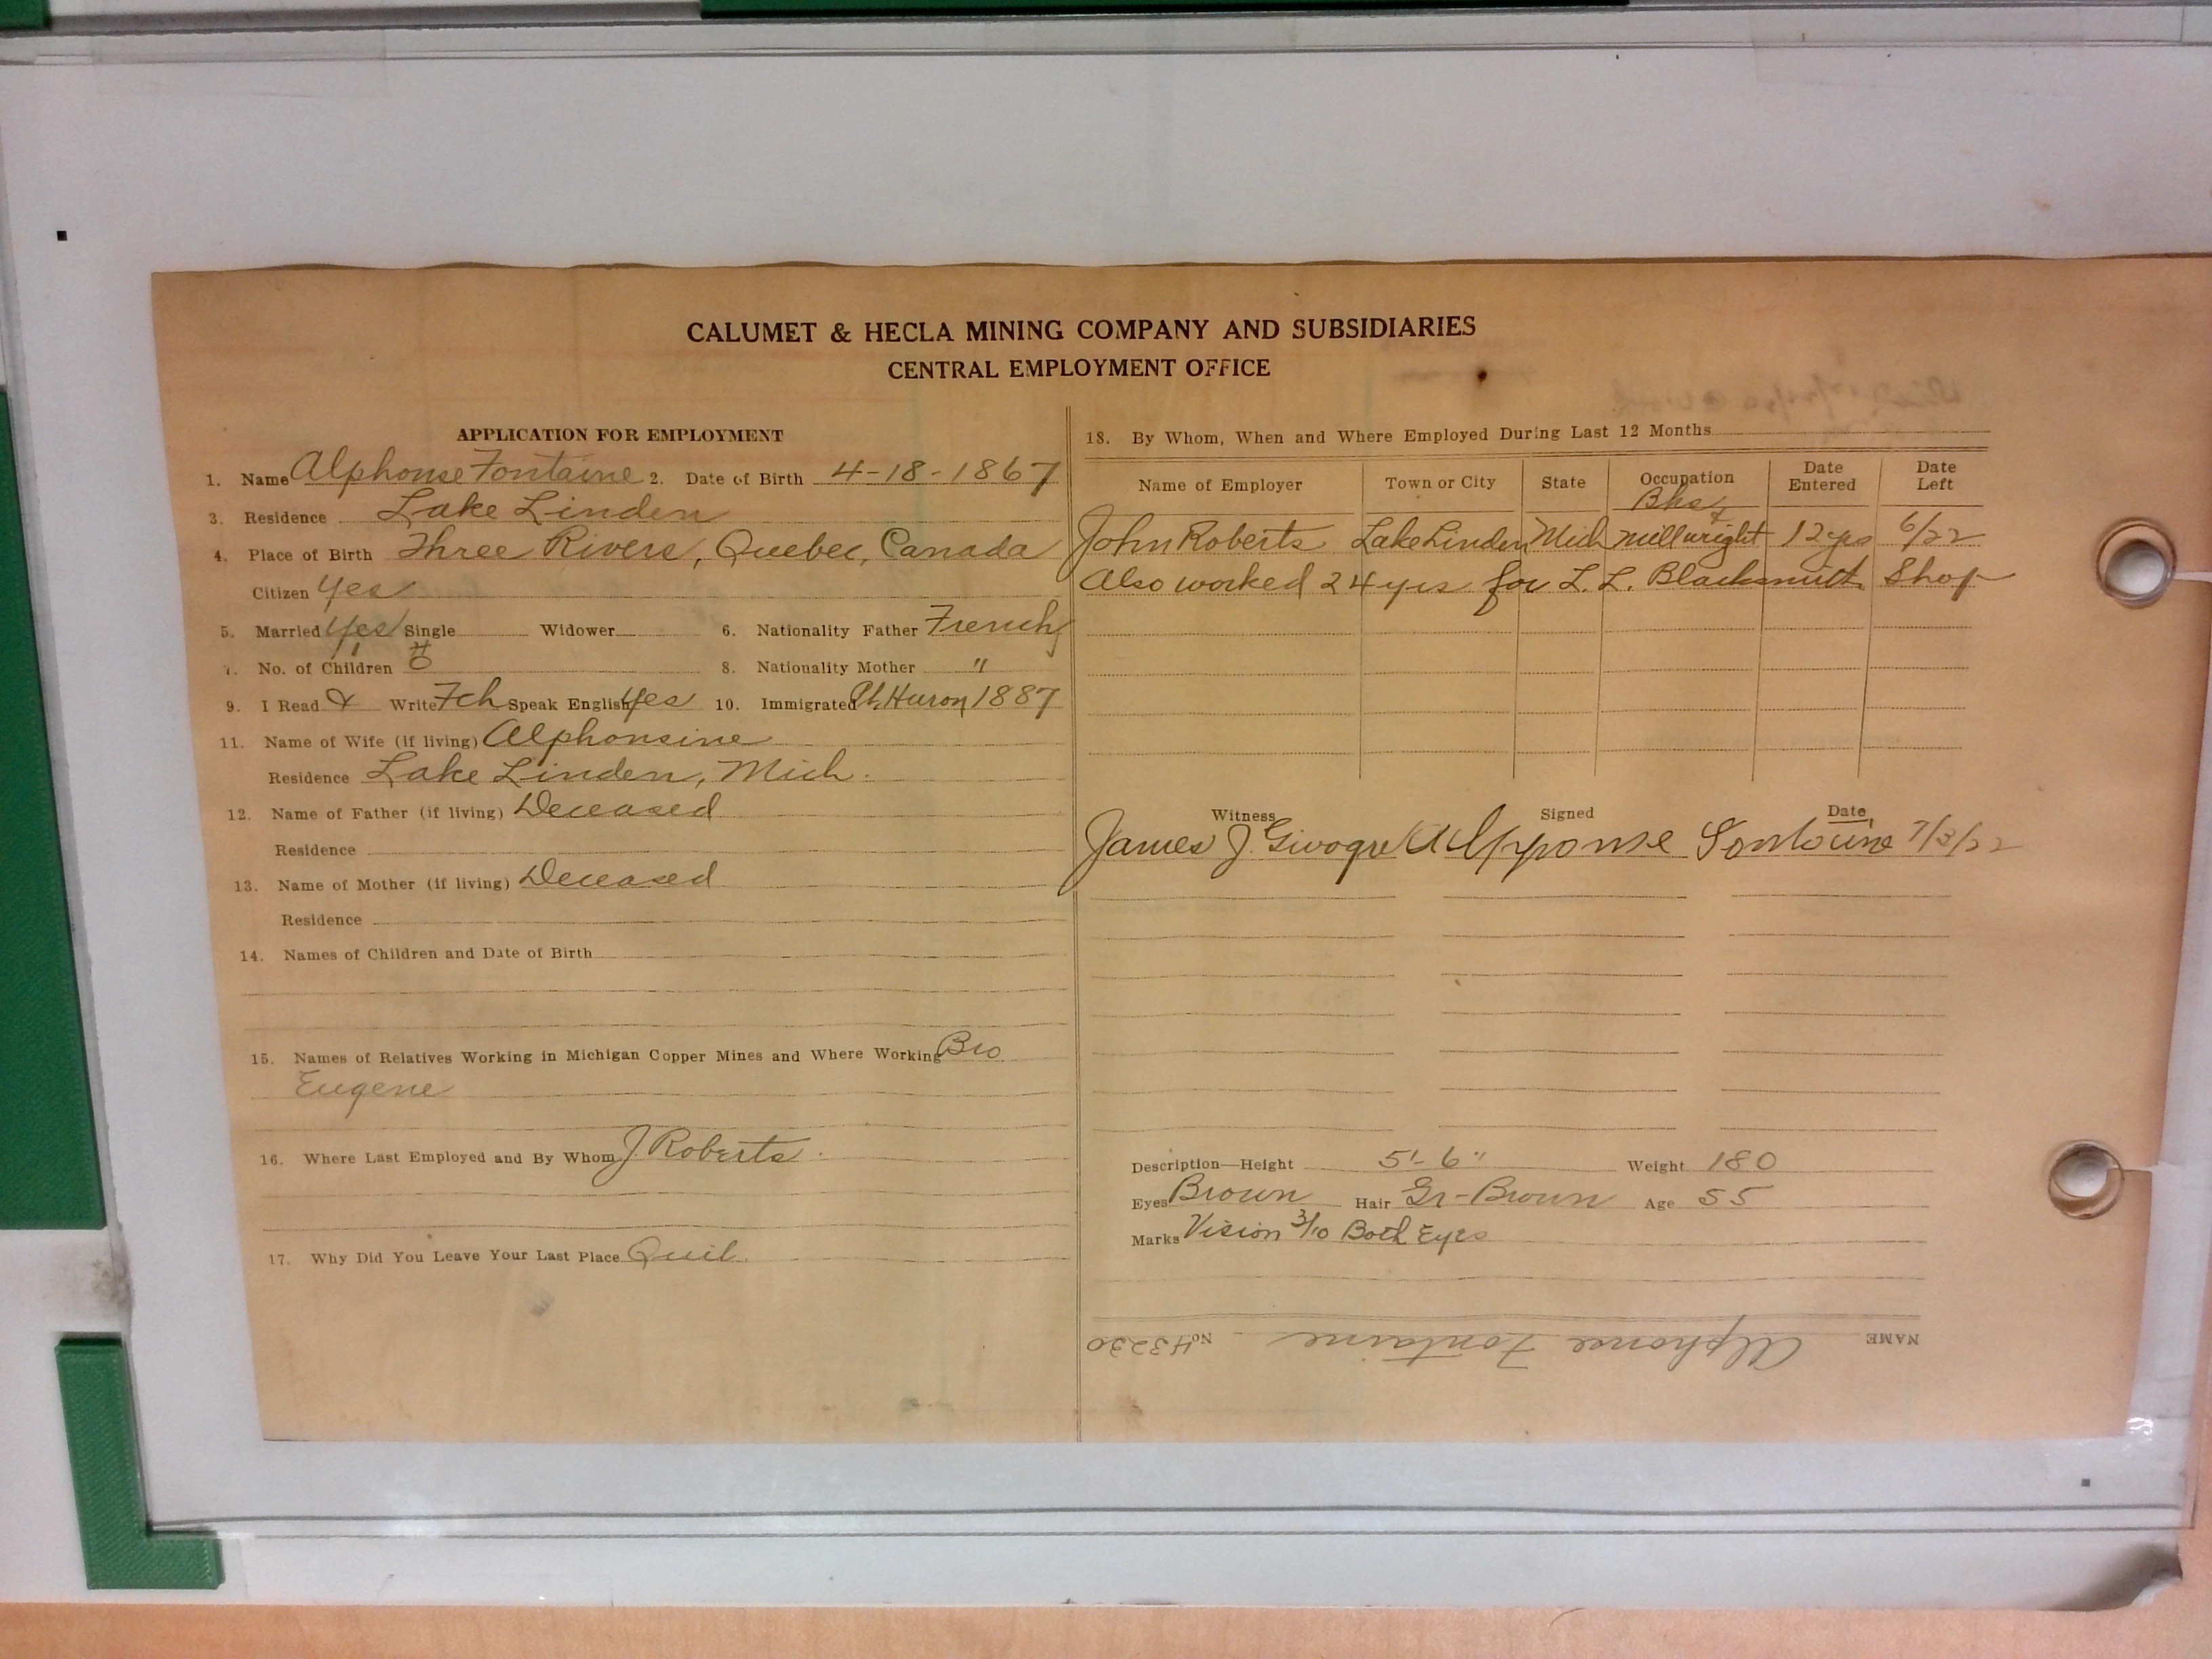 CALUMET & HECLA MINING COMPANY AND SUBSIDIARIES
CENTRAL EMPLOYMENT OFFICE
APPLICATION FOR EMPLOYMENT
1. Name Alphonse Fontaine 2. Date of Birth 4-18-1867
3. Residence Lake Linden
4. Place of Birth Three Rivers, Quebec, Canada
Citizen Yes
5. Married Yes Single Widower 6. Nationality Father French
7. No. of Children 8. Nationality Mother "
9. I Read & Write Fch Speak English Yes 10. Immigrated Pt. Huron 1887
11. Name of Wife (if living) Alphonsine
Residence Lake Linden, Mich.
12. Name of Father (if living) Deceased
Residence
13. Name of Mother (if living) Deceased
Residence
14. Names of Children and Date of Birth
15. Names of Relatives Working in Michigan Copper Mines and Where Working Bro
Eugene
16. Where Last Employed and By Whom J Roberts.
17. Why Did You Leave Your Last Place Quit.
18. By Whom, When and Where Employed During Last 12 Months
Name of Employer Town or City State Occupation Date Entered Date Left
John Roberts Lake Linden Mich & millwright 12 yrs 6/22
Also worked 24 yrs for L. L. Blacksmith Shop
Witness Signed Date
James J. Alphonse Fontaine 7/3/22
Description—Height 5'-6" Weight 180
Eyes Brown Hair Gr-Brown Age 55
Marks Vision 3/10 Both Eyes
NAME Alphonse Fontaine - No. 43230